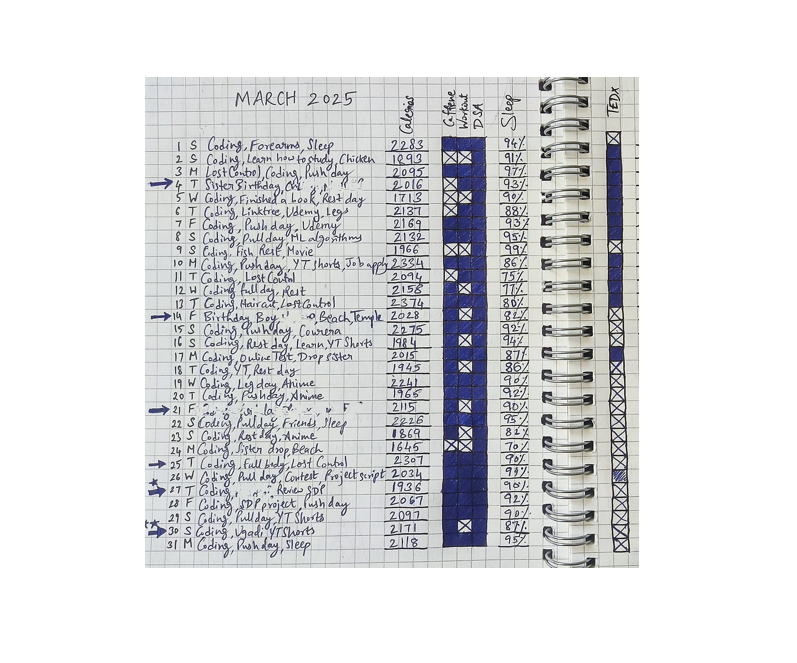 MARCH 2025 Calories Caffeine Workout DSA Sleep TEDx
1 S Coding, Forearms, Sleep 2283 94%
2 S Coding, Learn how to study, Chicken 1893 91%
3 M Lost Control, Coding, Push day 2095 97%
4 T Sister Birthday, 2016 93%
5 W Coding, Finished a book, Rest day 1713 90%
6 T Coding, Linktree, Udemy, Legs 2137 88%
7 F Coding, Push day, Udemy 2169 93%
8 S Coding, Pull day, ML algorithms 2132 95%
9 S Fish Rest, Movie 1966 99%
10 M Coding, Push day, YT shorts, Job apply 2334 86%
11 T Coding, Lost Control 2094 75%
12 W Coding, Rest 2158 77%
13 T Coding, Haircut, Lost Control 2374 80%
14 F Birthday Boy, Beach, Temple 2028 82%
15 S Coding, Push day, Coursera 2275 92%
16 S Coding, Rest day, Learn, YT Shorts 1984 94%
17 M Coding, Online Test, Drop sister 2015 87%
18 T Coding, YT, Rest day 1945 86%
19 W Coding, Leg day, Anime 2241 90%
20 T Coding, Push day, Anime 1965 92%
21 F 2115 90%
22 S Coding, Pull day, Friends, Sleep 2226 95%
23 S Coding, Rest day, Anime 1869 82%
24 M Coding, Sister drop, Beach 1645 70%
25 T Coding, Full body, Lost Control 2307 90%
26 W Coding, Pull day, Contest Project script 2034 99%
27 T Coding, Review SDP 1936 90%
28 F Coding, SDP project, Push day 2067 92%
29 S Coding, Pull day, YT Shorts 2097 90%
30 S Coding, Ugadi, YT Shorts 2171 87%
31 M Coding, Push day, Sleep 2118 95%